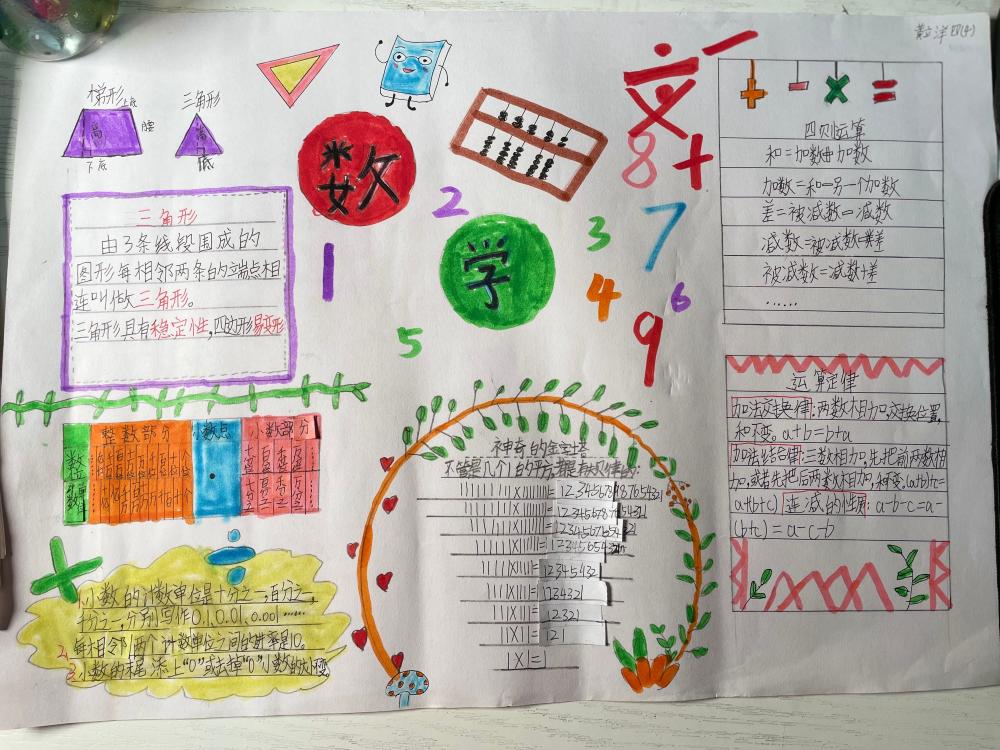 四(4)
梯形
上底
高
腰
下底
三角形
高
底
数
学
8
+
2
7
3
1
4
6
9
5
三角形
由3条线段围成的
图形每相邻两条的端点相
连叫做三角形。
三角形具有稳定性,四边形易变形
+ - × =
四则运算
和=加数+加数
加数=和-另一个加数
差=被减数-减数
减数=被减数-差
被减数=减数+差
......
运算定律
加法交换律:两数相加,交换位置,
和不变。a+b=b+a
加法结合律:三数相加,先把前两数相
加,或者先把后两数相加,和不变。(a+b)+c=
a+(b+c) 连减的性质:a-b-c=a-
(b+c)=a-c-b
整数部分 小数点 小数部分
数位
十分位 百分位 千分位 万分位
·
1.小数的计数单位是十分之一,百分之一,
千分之一,分别写作0.1、0.01、0.001······
2.每相邻两个计数单位之间的进率是10。
3.小数的末尾添上“0”或去掉“0”小数的大小不变。
神奇的金字塔
不管是几个1的平方,都有大规律的:
111111111×111111111=12345678987654321
11111111×11111111=123456787654321
1111111×1111111=1234567654321
111111×111111=12345654321
11111×11111=123454321
1111×1111=1234321
111×111=12321
11×11=121
1×1=1